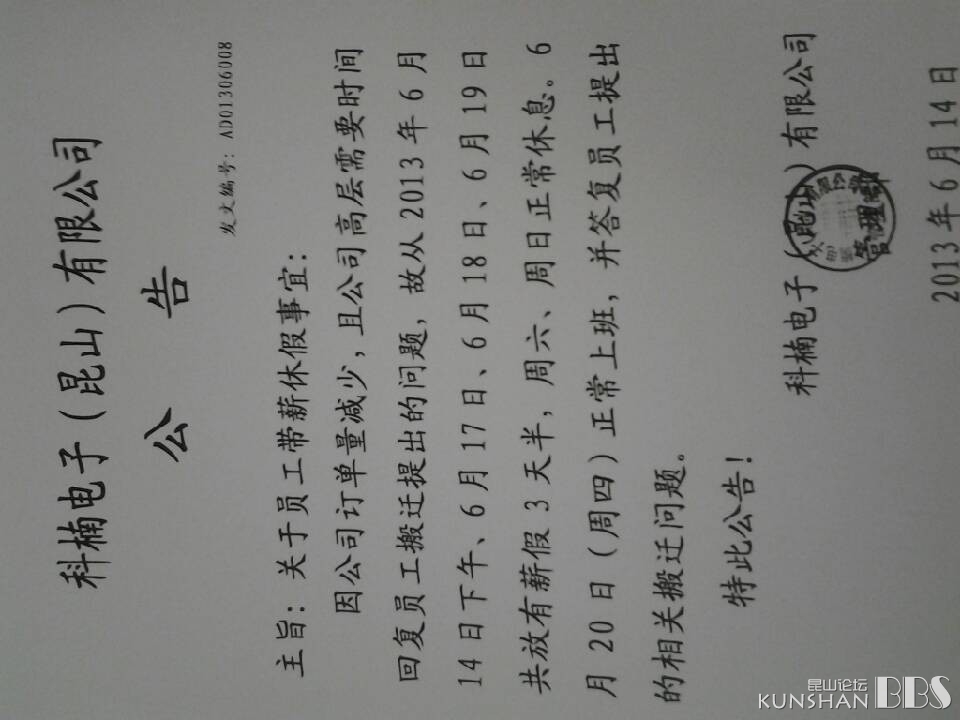 科楠电子(昆山)有限公司
公 告
发文编号: AD01306008
主旨: 关于员工带薪休假事宜:
因公司订单量减少,且公司高层需要时间
回复员工搬迁提出的问题,故从2013年6月
14日下午、6月17日、6月18日、6月19日
共放有薪假3天半,周六、周日正常休息。6
月20日(周四)正常上班,并答复员工提出
的相关搬迁问题。
特此公告!
科楠电子(昆山)有限公司
管理部
2013年6月14日
昆山论坛
KUNSHAN BBS